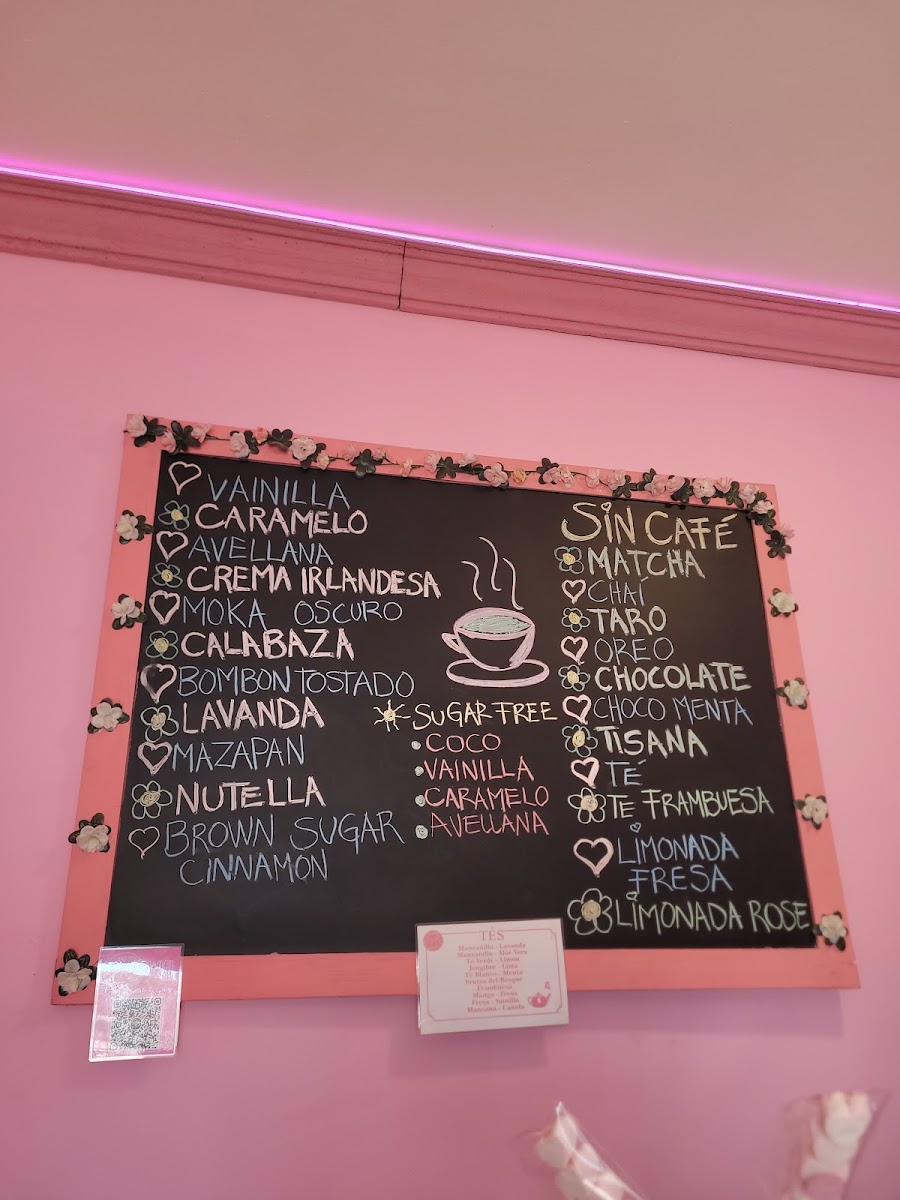 VAINILLA
CARAMELO
AVELLANA
CREMA IRLANDESA
MOKA OSCURO
CALABAZA
BOMBON TOSTADO
LAVANDA
MAZAPAN
NUTELLA
BROWN SUGAR
CINNAMON
SUGAR FREE
COCO
VAINILLA
CARAMELO
AVELLANA
SIN CAFÉ
MATCHA
CHAÍ
TARO
OREO
CHOCOLATE
CHOCO MENTA
TISANA
TÉ
TE FRAMBUESA
LIMONADA
FRESA
LIMONADA ROSE
TÉS
Manzanilla - Lavanda
Manzanilla - Aloe Vera
Té Verde - Limón
Jengibre - Lima
Té Blanco - Menta
Frutos del Bosque
Frambuesa
Mango - Fresa
Fresa - Vainilla
Manzana - Canela